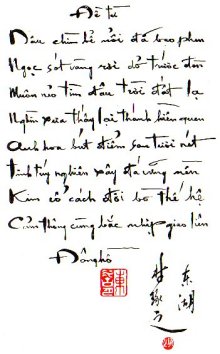 Đề từ
Nâu chìm bể nổi đá bao phen
Ngọc sót vàng rơi dở trước đèn
Muôn nẻo tìm đâu trời đất lạ
Nghìn xưa thấy lại thánh hiền quen
Anh hoa bút điểm sau tươi nét
Tinh túy nghiên xây đá vững nền
Kim cổ cách đôi bờ thế hệ
Cảm thông cùng bắc nhịp giao liên
Đông hồ
东湖
林琢之
東